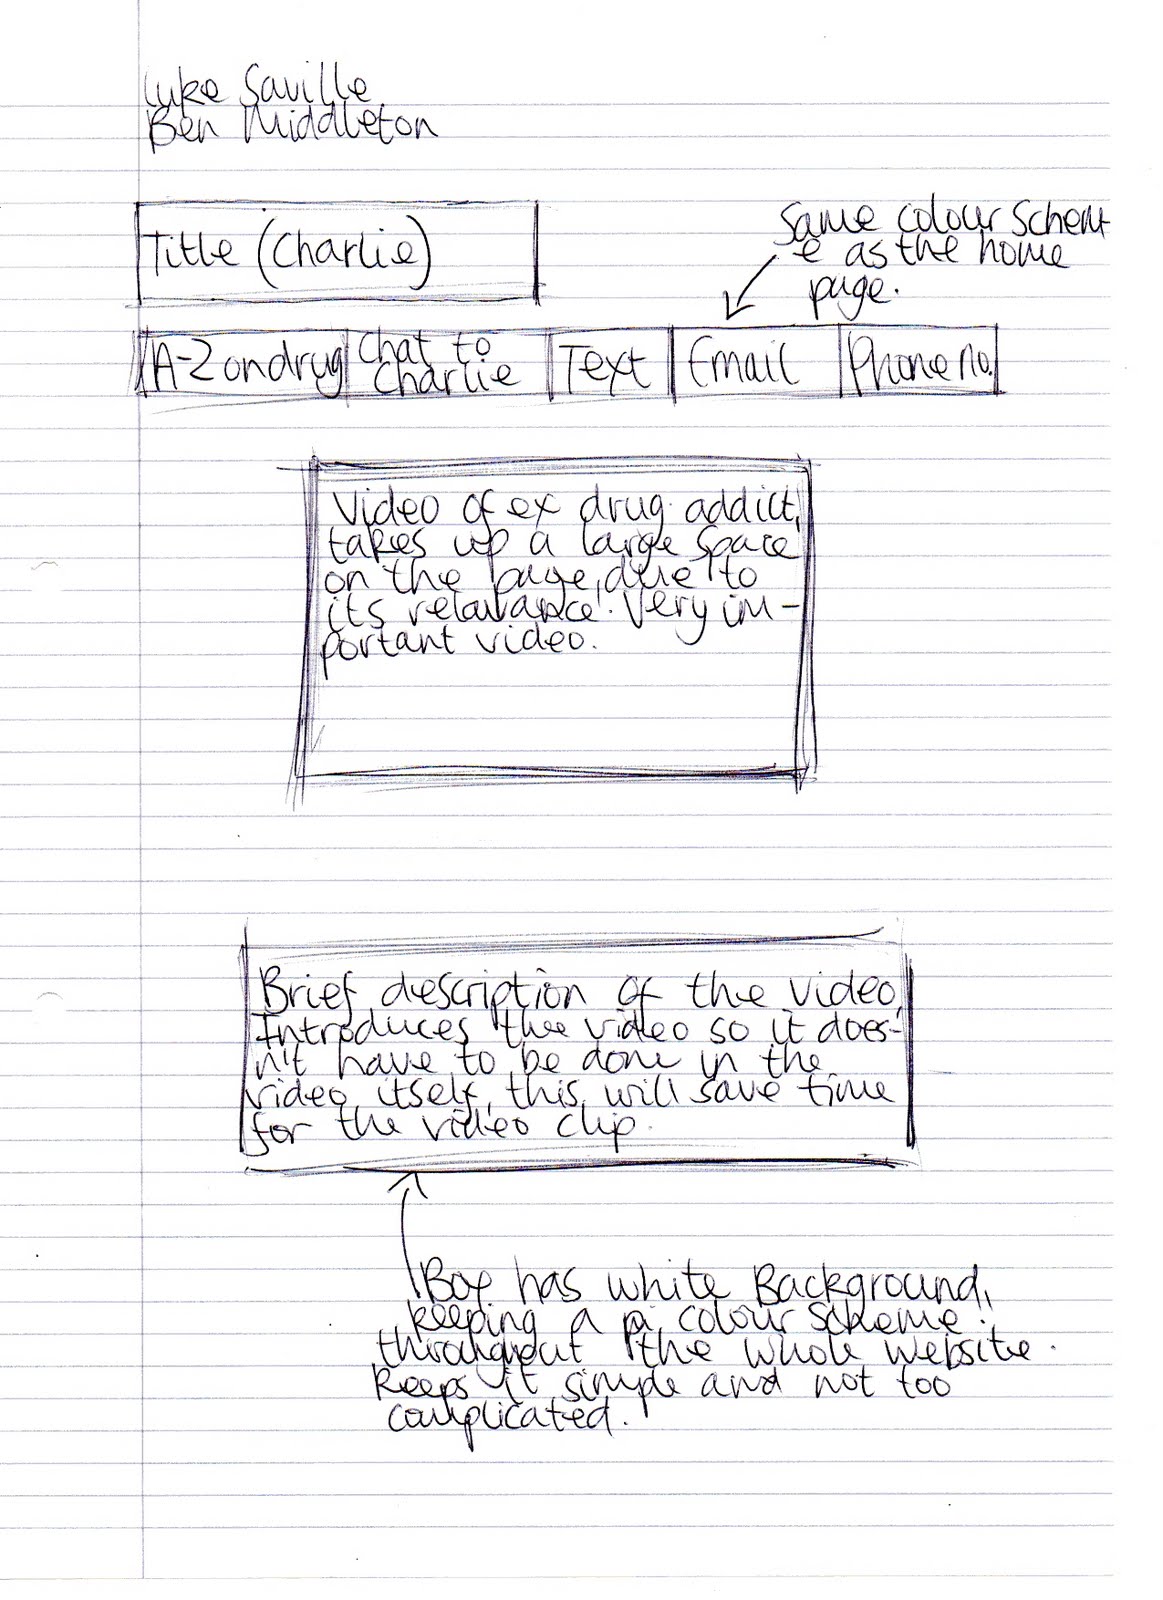 Luke Saville
Ben Middleton
Title (Charlie)
Same colour schem
e as the home
page.
A-Z on drug
Chat to
Charlie
Text
Email
Phone no.
Video of ex drug addict,
takes up a large space
on the page, due to
its relavance. Very im-
portant video.
Brief description of the video,
Introduces the video so it does-
n't have to be done in the
video itself, this will save time
for the video clip.
Box has white Background,
keeping a colour scheme
throughout the whole website.
Keeps it simple and not too
complicated.